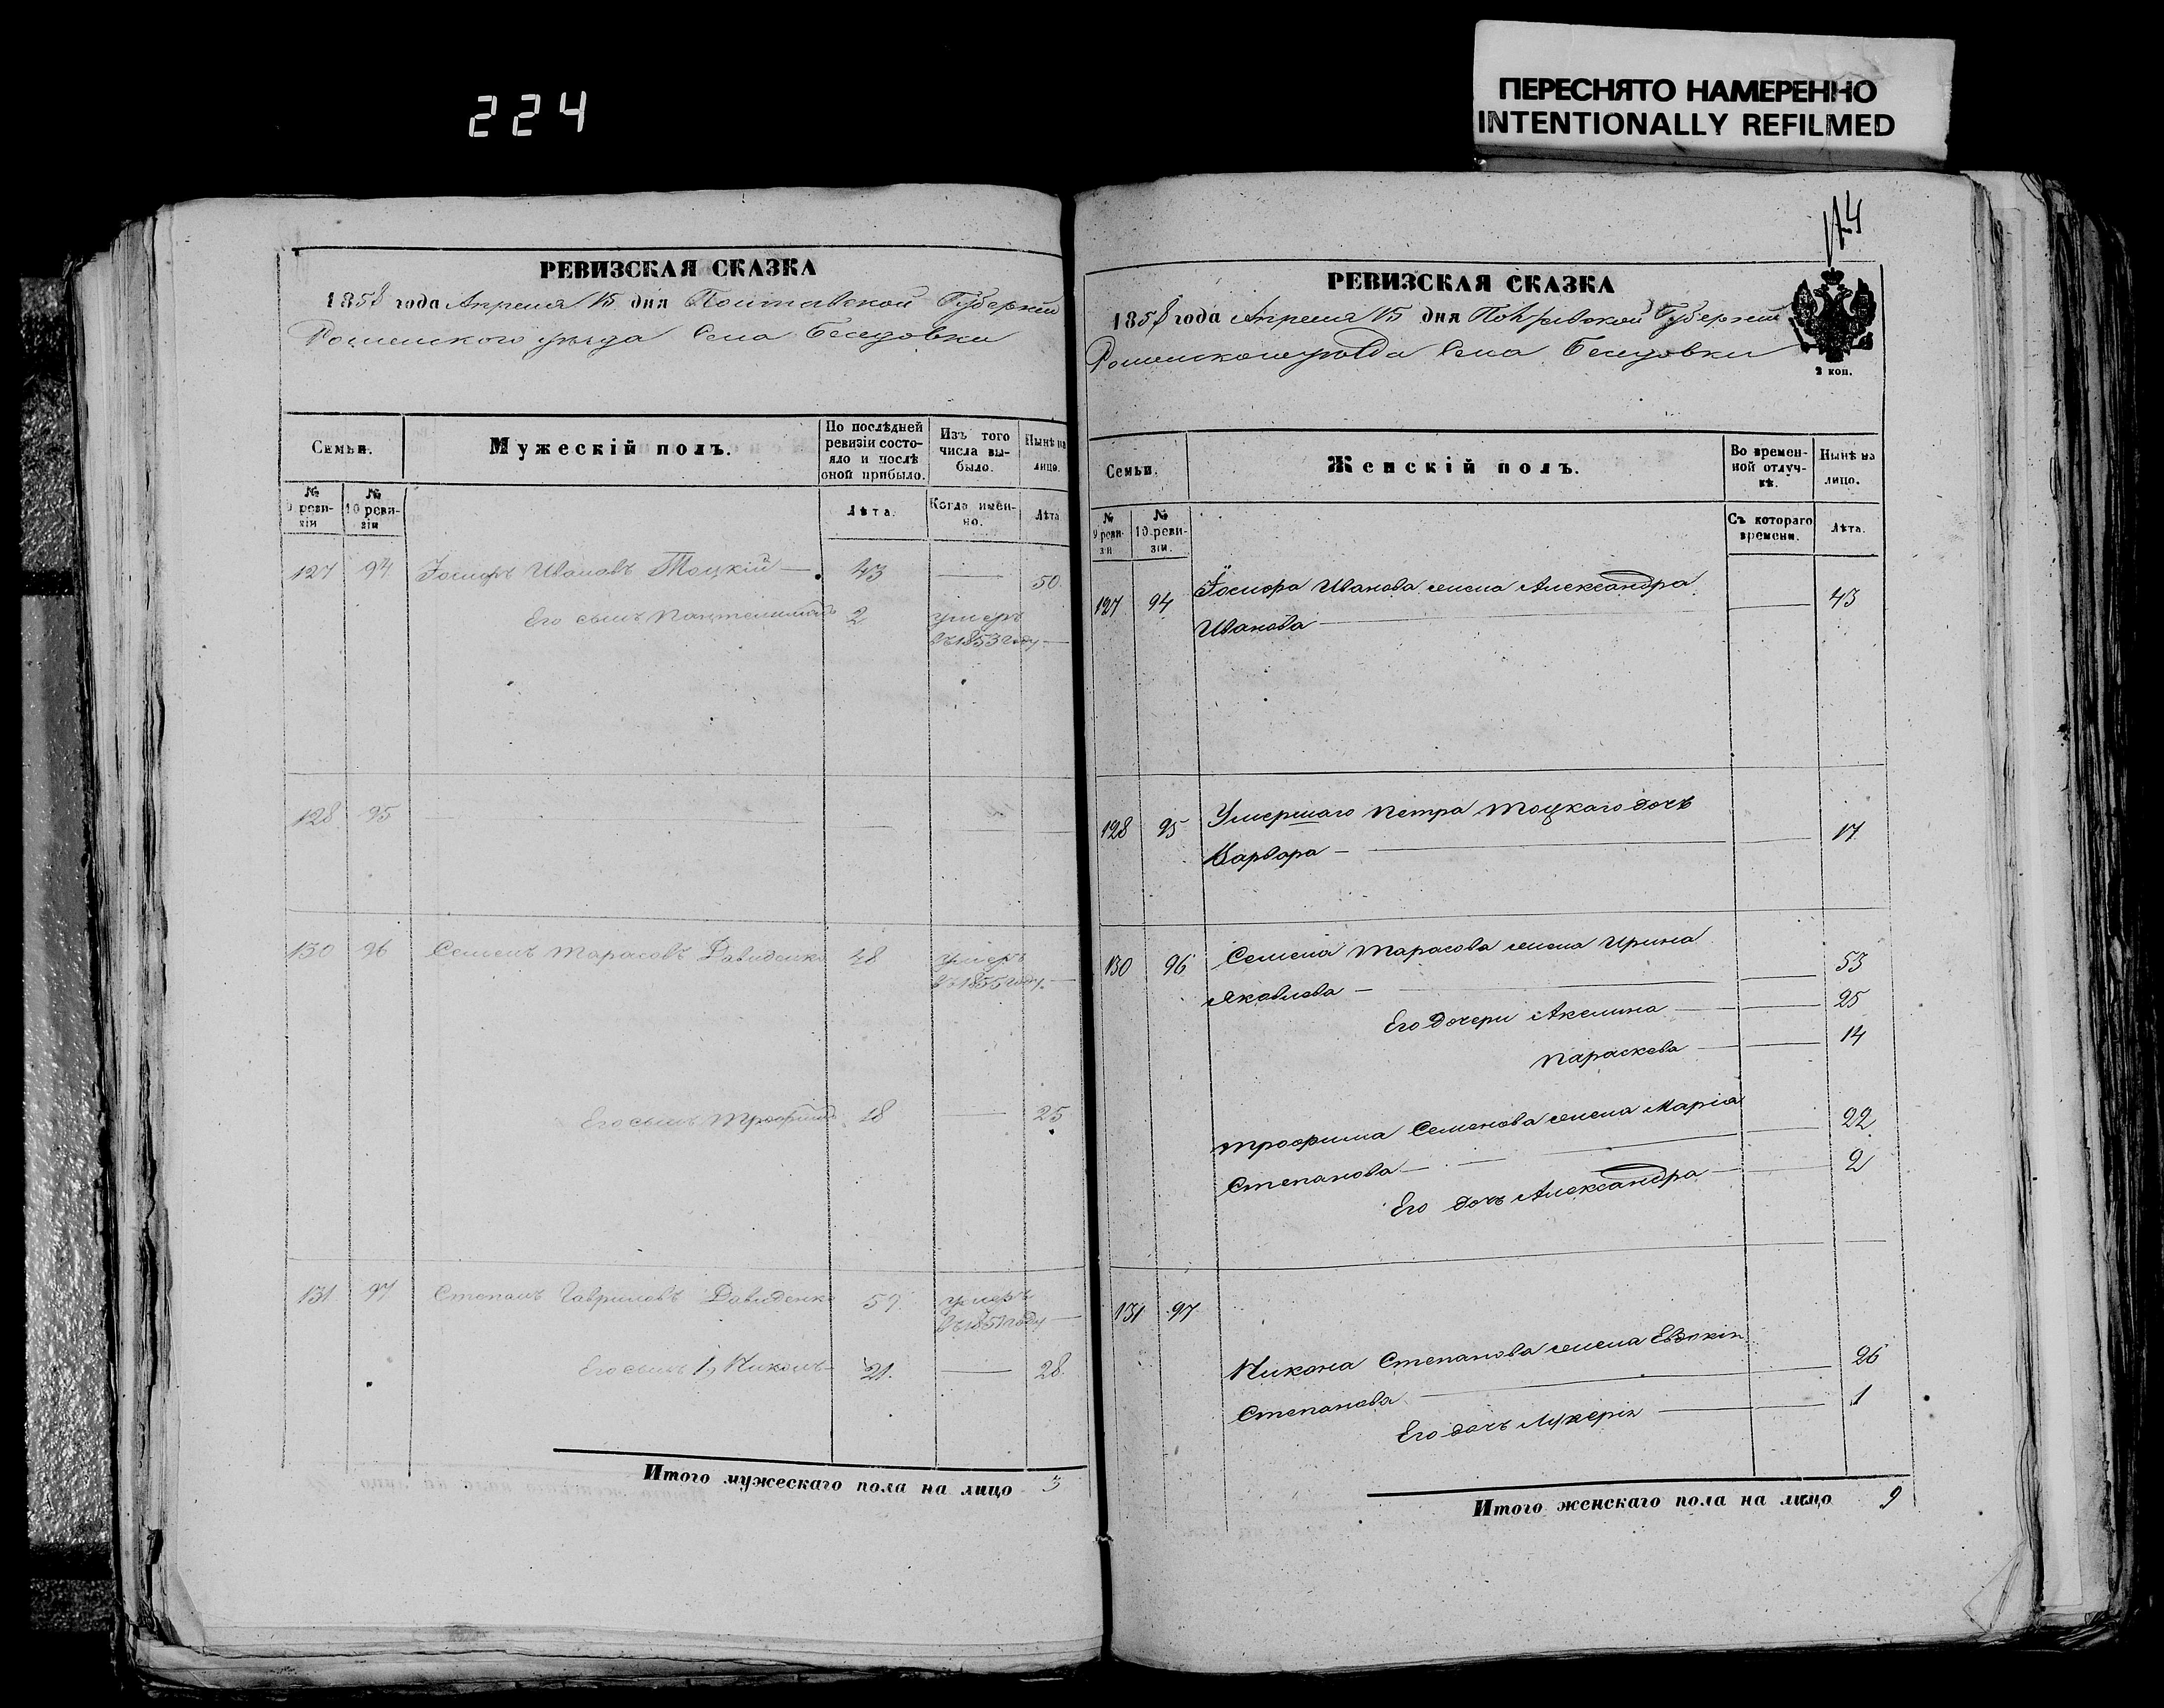 224
ПЕРЕСНЯТО НАМЕРЕННО
INTENTIONALLY REFILMED
РЕВИЗСКАЯ СКАЗКА
1858 года Апреля 15 дня Полтавской Губернии
Роменского уезда Села Беседовки
Семьи.
Мужескій полъ.
По послѣдней ревизіи состояло и послѣ оной прибыло.
Изъ того числа выбыло.
Нынѣ на лицо.
№ 9 ревизіи
№ 10 ревизіи
Лѣта.
Когда именно.
Лѣта
127 94 Іосифъ Ивановъ Тоцкій — 43 — 50.
Его сынъ Пантелимонъ 2 умеръ
въ 1853 году —
128 95 — — — —
130 96 Семенъ Тарасовъ Давиденко 48 умеръ
въ 1855 году. —
Его сынъ Трофимъ 18 — 25
131 97 Степанъ Гавриловъ Давиденко 57. умеръ
въ 1851 году —
Его сынъ 1, Никонъ — 21. — 28.
Итого мужескаго пола на лицо 3
174
РЕВИЗСКАЯ СКАЗКА
1858 года Апреля 15 дня Полтавской Губерніи
Роменского уезда Села Беседовки
2 коп.
Семьи.
Женскій полъ.
Во временной отлучкѣ.
Нынѣ на лицо.
№ 9 ревизіи
№ 10 ревизіи.
Съ котораго времени.
Лѣта.
127 94 Іосифа Иванова жена Александра
Иванова — — 43
128 95 Умершаго Петра Тоцкаго дочь
Варвара — — 17
130 96 Семена Тарасова жена Ирина
Яковлева — — 53
Его дочери Акелина — — 25
Параскева — — 14
Трофима Семенова жена Марія
Степанова — — 22
Его дочь Александра — — 2
131 97
Никона Степанова жена Евдокія
Степанова — — 26
Его дочь Лукерія — — 1
Итого женскаго пола на лицо 9